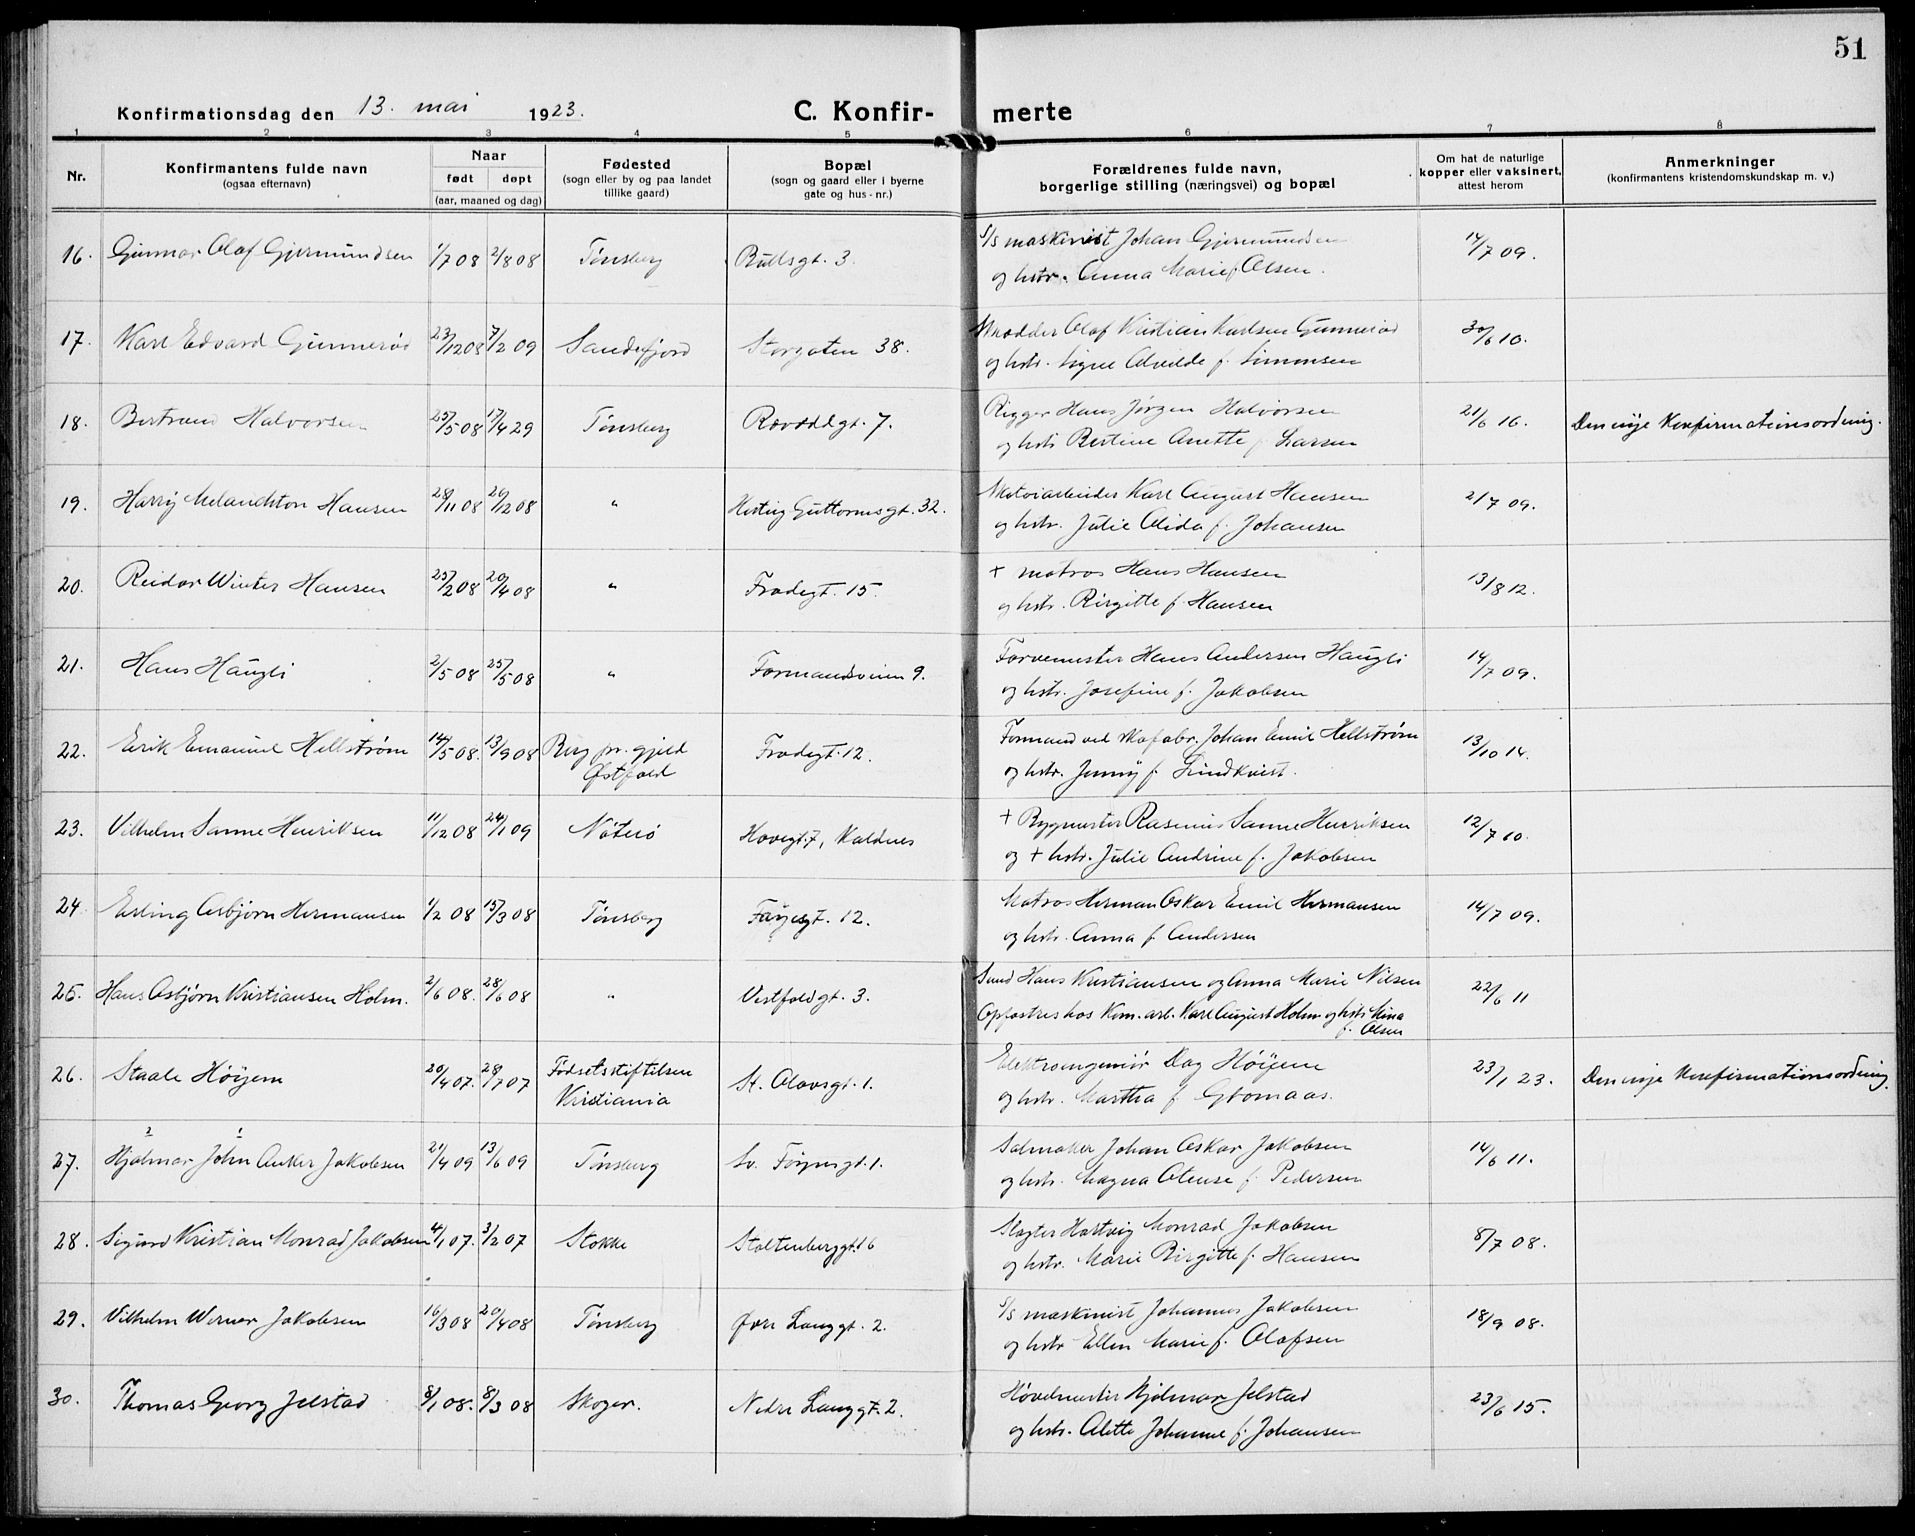 51
Konfirmationsdag den 13. mai 1923.
C. Konfir- merte
1 2 3 4 5 6 7 8
Nr.
Konfirmantens fulde navn
(ogsaa efternavn)
Naar
født døpt
(aar, maaned og dag)
Fødested
(sogn eller by og paa landet
tillike gaard)
Bopæl
(sogn og gaard eller i byerne
gate og hus-nr.)
Forældrenes fulde navn,
borgerlige stilling (næringsvei) og bopæl
Om hat de naturlige
kopper eller vaksinert,
attest herom
Anmerkninger
(konfirmantens kristendomskundskap m. v.)
16. Gunnar Olaf Gjermundsen 1/7 08 2/8 08 Tønsberg Bullsgt. 3. S/s maskinist Johan Gjermundsen 14/7 09.
og hstr. Anna Marie f. Olsen.
17. Karl Edvard Gunnerød 23/12 08 7/2 09 Sandefjord Storgaten 38. Skrædder Olaf Kristian Karlsen Gunnerød 30/6 10.
og hstr. Signe Alvilde f. Simonsen
18. Bertrand Halvorsen 25/5 08 17/4 29 Tønsberg Rævddlgt. 7. Rigger Hans Jørgen Halvorsen 21/6 16. Den nye Konfirmationsordning.
og hstr. Bertine Anette f. Larsen
19. Harry Melanchton Hansen 28/11 08 26/12 08 " Hertug Guttormsgt. 32. Motorarbeider Karl August Hansen 2/7 09.
og hstr. Julie Alida f. Johansen
20. Reidar Winter Hansen 25/2 08 20/4 08 " Frodegt. 15. + matros Hans Hansen 13/8 12.
og hstr. Birgitte f. Hansen
21. Hans Haugli 2/5 08 25/5 08 " Formandsveien 9. Farvemester Hans Andersen Haugli 14/7 09.
og hstr. Josefine f. Jakobsen
22. Erik Emanuel Hellstrøm 14/5 08. 13/9 08 Berg pr. gjeld Frodegt. 12. Formand ved skofabr. Johan Emil Hellstrøm 13/10 14.
Østfold og hstr. Jenny f. Lindkvist.
23. Vilhelm Sanne Henriksen 11/12 08 24/1 09 Nøterø Hovegt. 7, Kaldnes + Bygmester Rasmus Sanne Henriksen 12/7 10.
og + hstr. Julie Andrine f. Jakobsen
24. Erling Asbjørn Hermansen 1/2 08 15/3 08 Tønsberg Farjesgt. 12. Matros Herman Oskar Emil Hermansen 14/7 09.
og hstr. Anna f. Andersen
25. Hans Asbjørn Kristiansen Holm. 2/6 08. 28/6 08 " Vestfoldgt. 3. Hans Kristiansen og Anna Marie Nilsen 22/6 11
Opfostres hos Kom. arb. Karl August Holm og hstr. Mina
f. Olsen
26. Staale Høyem 20/4 07. 28/7 07 Fødselsstiftelsen St. Olavsgt. 1. Elektroingeniør Dag Høyem 23/1 23. Den nye Konfirmationsordning.
Kristiania og hstr. Martha f. Gromaas.
2 1
27. Hjalmar John Anker Jakobsen 21/4 09 13/6 09 Tønsberg Sv. Føynsgt. 1. Salmaker Johan Oskar Jakobsen 14/6 11.
og hstr. Magna Otense f. Pedersen
28. Sigurd Kristian Monrad Jakobsen 4/1 07. 3/2 07 Stokke Stoltenberggt. 16 Slagter Hartvig Monrad Jakobsen 8/7 08.
og hstr. Marie Birgitte f. Hansen
29. Vilhelm Werner Jakobsen 16/3 08 20/4 08 Tønsberg Øvre Langgt. 2. S/s maskinist Johannes Jakobsen 18/9 08.
og hstr Ellen Marie f. Olafsen
30. Thomas Georg Jelstad 8/1 08. 8/3 08 Skoger. Nedre Langgt. 2. Høvelmester Hjalmar Jelstad 23/6 15.
og hstr. Alette Johanne f. Johansen